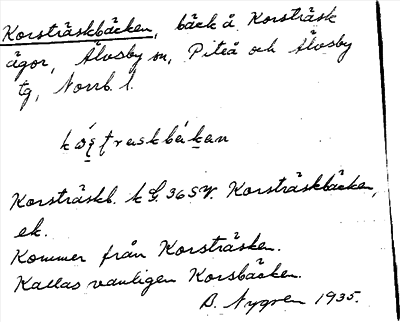 Korsträskbäcken, bäck å Korsträsk
ägor, Älvsby sn, Piteå och Älvsby
tg, Norrb. l.
Korsträskb. k S. 36 SV. Korsträskbäcken,
ek.
Kommer från Korsträsken.
Kallas vanligen Korsbäcken.
B. Nygren 1935.